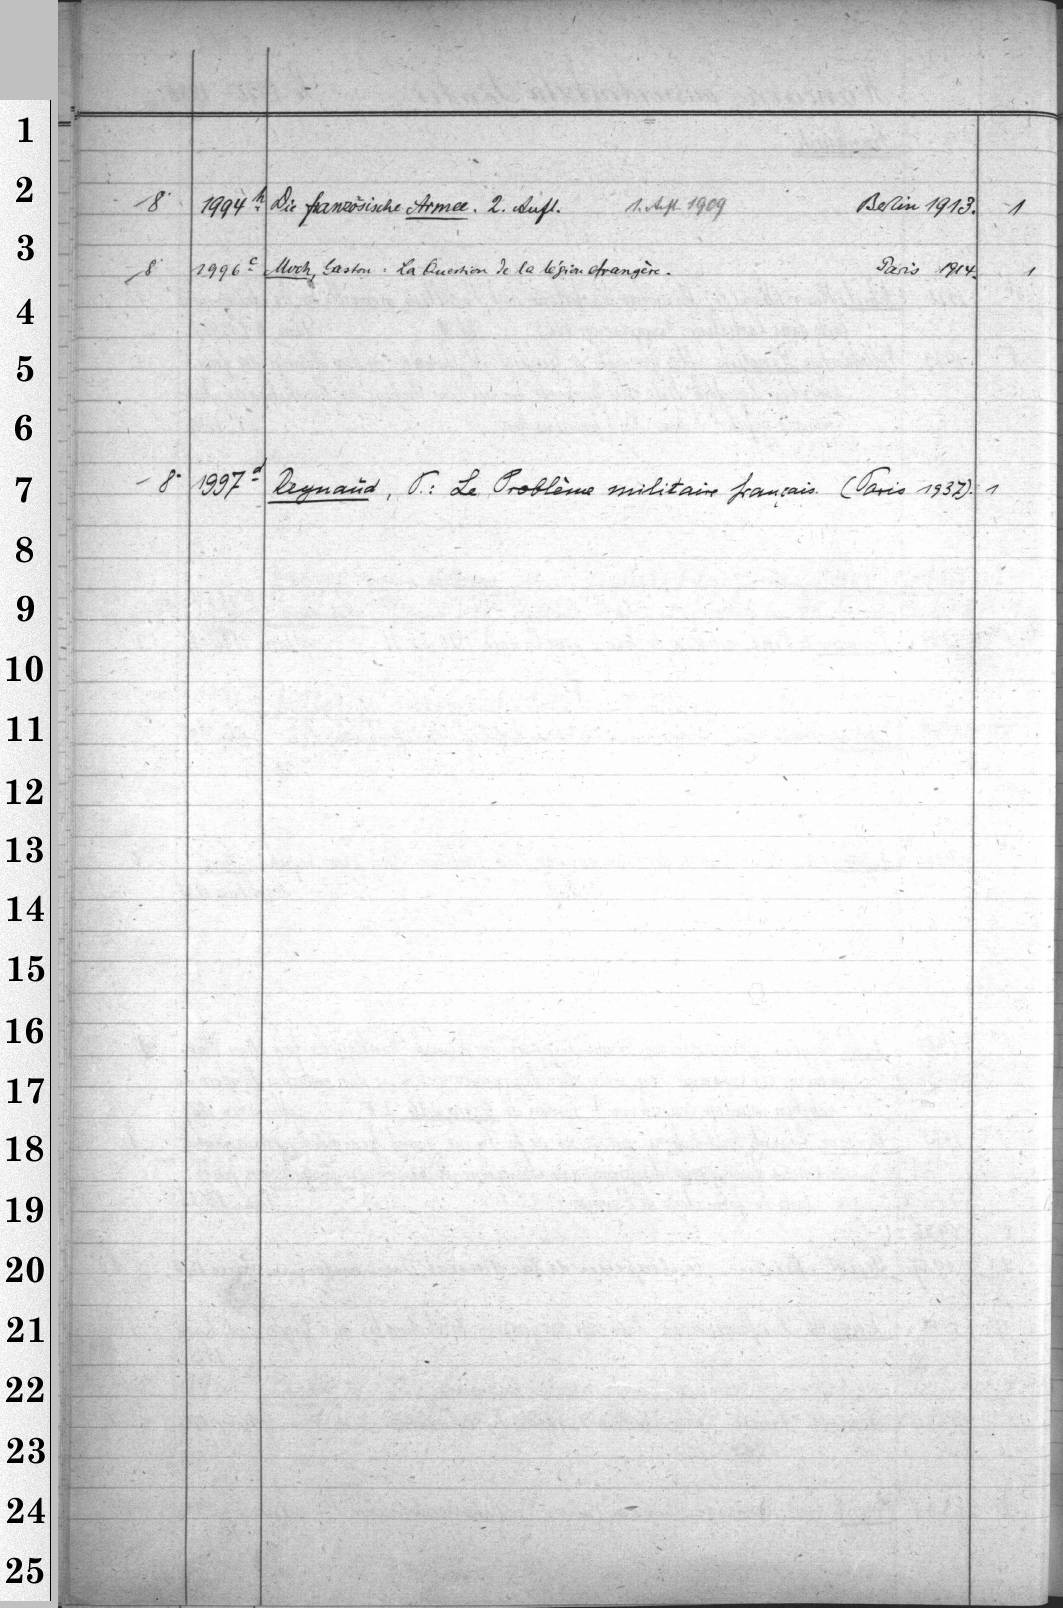 1
2
8° 1994 h. Die französische Armee. 2. Aufl. 1. Aufl. 1909 Berlin 1913. 1
3
8° 1996 c Moch, Gaston: La Question de la légion étrangère. Paris 1914. 1
4
5
6
7
8° 1997 d Reynaud, P.: Le Problème militaire français. (Paris 1937). 1
8
9
10
11
12
13
14
15
16
17
18
19
20
21
22
23
24
25